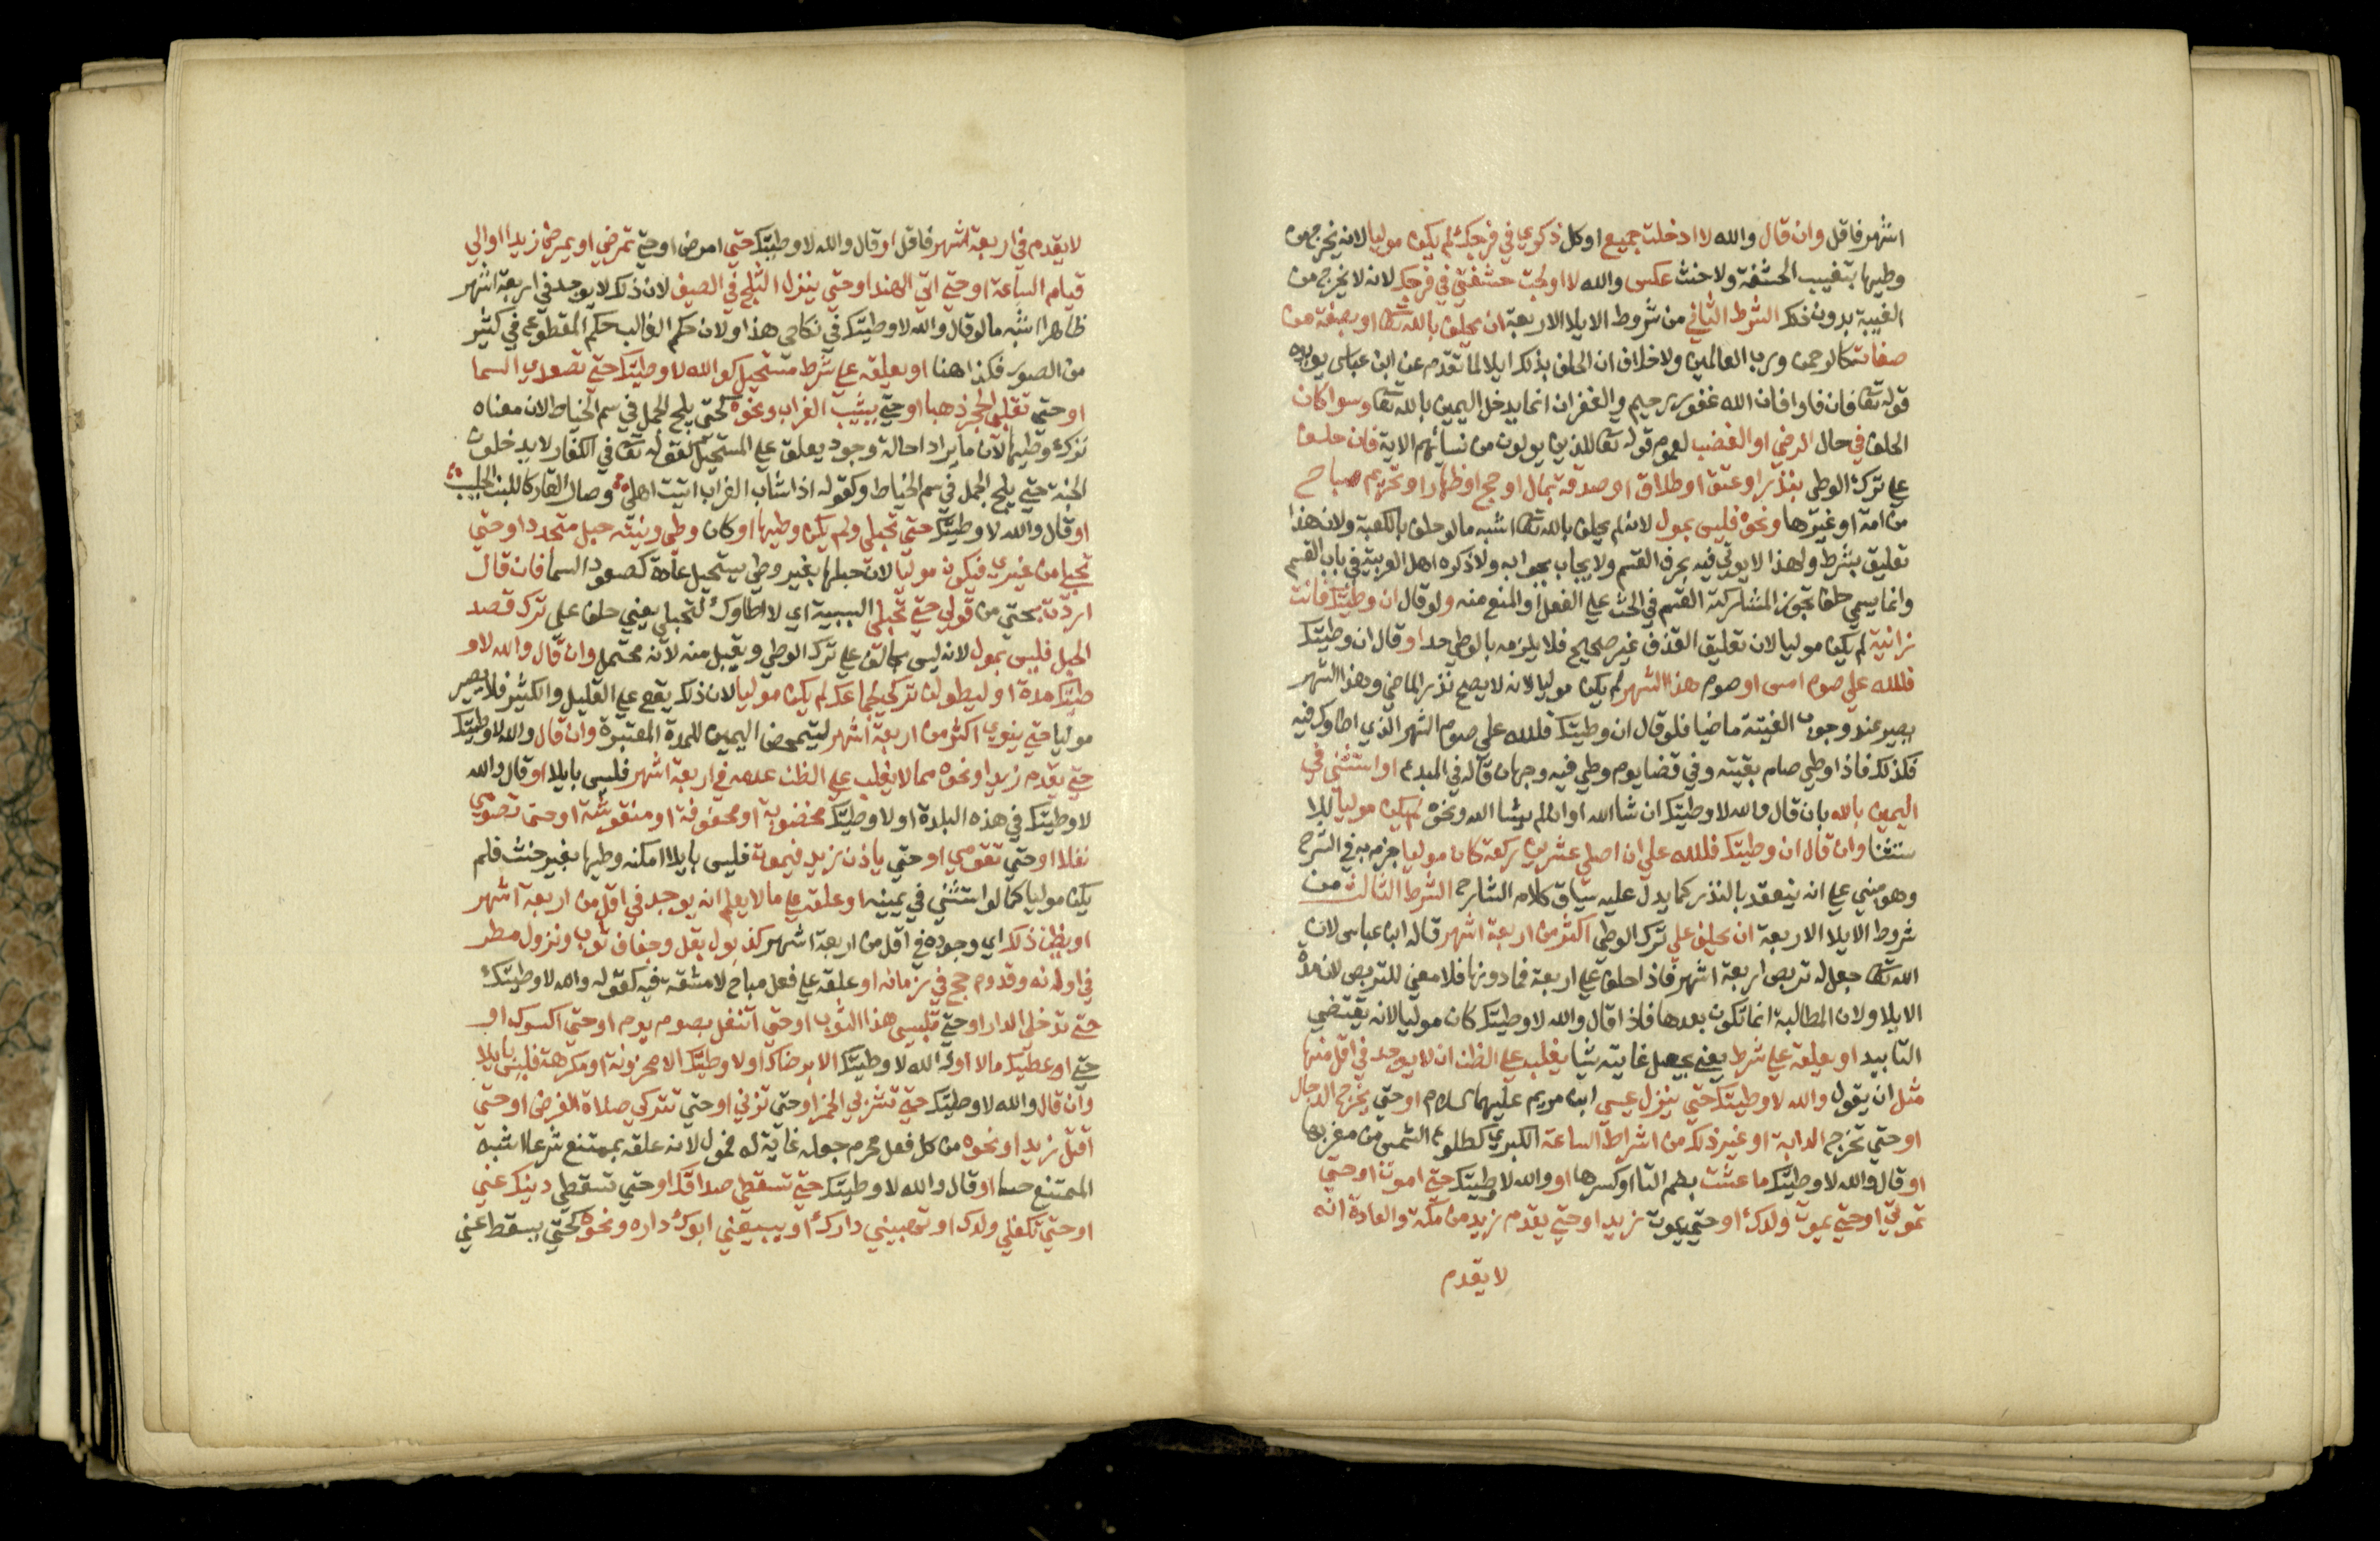 اشهر فاقل وان قال والله لا ادخلت جميع او كل ذكري في فرجك لم يكن موليا لانه يخرج من
وطيها بتغييب الحشفة ولا حنث عكس والله لا اولجت حشفتي في فرجك لانه لا يخرج من
الفيئة بدون ذلك الشرط الثاني من شروط الايلا الاربعة ان يحلف بالله تعا او بصفة من
صفاته كالرحمن ورب العالمين ولا خلاف ان الحلف بذلك ايلا لما تقدم عن ابن عباس يويده
قوله تعا فان فاوا فان الله غفور رحيم والغفران انما يدخل اليمين بالله تعا وسوا كان
الحلف في حال الرضي او الغضب لعموم قوله تعا للذين يولون من نسائهم الاية فان حلف
علي ترك الوطي بنذر او عتق او طلاق او صدقة بمال او حج او ظهار او تحريم مباح
من امة او غيرها ونحوه فليس بمول لانه لم يحلف بالله تعا اشبه ما لو حلف بالكعبة ولان هذا
تعليق بشرط ولهذا لا يوتي فيه بحرف القسم ولا يجاب بجوابه ولا ذكره اهل العربية في باب القسم
وانما يسمي حلفا تجوزا لمشاركته القسم في الحث علي الفعل او المنع منه ولو قال ان وطيتك فانت
زانية لم يكن موليا لان تعليق القذف غير صحيح فلا يلزمه بالوطي حد او قال ان وطيتك
فلله علي صوم امس او صوم هذا الشهر لم يكن موليا لانه لا يصح نذر الماضي وهذا الشهر
يصير عند وجوب الفيئة ماضيا فلو قال ان وطيتك فلله علي صوم الشهر الذي اطاوك فيه
فكذلك فاذا وطي صام بقيته وفي قضا يوم وطي فيه وجهان قاله في المبدع او استثني في
اليمين بالله بان قال والله لا وطيتك ان شا الله او ان لم يشا الله ونحوه لم يكن موليا للا
ستثنا وان قال ان وطيتك فلله علي ان اصلي عشرين ركعة كان موليا جزم به في الشرح
وهو مبني علي انه ينعقد بالنذر كما يدل عليه سياق كلام الشارح الشرط الثالث من
شروط الايلا الاربعة ان يحلف علي ترك الوطي اكثر من اربعة اشهر قاله ابن عباس لان
الله تعا جعل له تربص اربعة اشهر فاذا حلف علي اربعة فما دونها فلا معني للتربص لان مدة
الايلا ولان المطالبة انما تكون بعدها فاذا قال والله لا وطيتك كان موليا لانه يقتضي
التابيد او يعلقه علي شرط يعني يجعل غايته شيا يغلب علي الظن ان لا يوجد في اقل منها
مثل ان يقول والله لا وطيتك حتي ينزل عيسي ابن مريم عليهما السلام او حتي يخرج الدجال
او حتي تخرج الدابة او غير ذلك من اشراط الساعة الكبري كطلوع الشمس من مغربها
او قال والله لا وطيتك ما عشت بضم التا او كسرها او والله لا وطيتك حتي اموت او حتي
تموتي او حتي يموت ولدك او حتي يموت زيد او حتي يقدم زيد من مكة والعادة انه
لا يقدم
لا يقدم في اربعة اشهر فاقل او قال والله لا وطيتك حتي امرض او حتي تمرضي او يمرض زيد او الي
قيام الساعة او حتي اتي الهند او حتي ينزل الثلج في الصيف لان ذلك لا يوجد في اربعة اشهر
ظاهرا اشبه ما لو قال والله لا وطيتك في نكاحي هذا ولان حكم الغالب حكم المقطوع في كثير
من الصور فكذا هنا او يعلقه علي شرط مستحيل كو الله لا وطيتك حتي تصعدي السما
او حتي تقلبي الحجر ذهبا او حتي يشيب الغراب ونحوه كحتي يلج الجمل في سم الخياط لان معناه
ترك وطيها لان ما يراد احالة وجوده يعلق علي المستحيل كقوله تعا في الكفار لا يدخلون
الجنة حتي يلج الجمل في سم الخياط وكقوله اذا شاب الغراب اتيت اهلي وصار القار كاللبن الحليب
او قال والله لا وطيتك حتي تحبلي ولم يكن وطيها او كان وطي ونيته حبل متجدد او حتي
تحبلي من غيري فيكون موليا لان حبلها بغير وطي يستحيل عادة كصعود السما فان قال
اردت بحتي من قولي حتي تحبلي السببية اي لا اطاوك لتحبلي يعني حلف علي ترك قصد
الحبل فليس بمول لانه ليس بحالف علي ترك الوطي ويقبل منه لانه محتمل وان قال والله لا و
طيتك مدة او ليطولن تركي لجماعك لم يكن موليا لان ذلك يقع علي القليل والكثير فلا يصير
موليا حتي ينوي اكثر من اربعة اشهر ليتمحض اليمين للمدة المعتبرة وان قال والله لا وطيتك
حتي يقدم زيد او نحوه مما لا يغلب علي الظن عدمه في اربعة اشهر فليس بايلا او قال والله
لا وطيتك في هذه البلدة او لا وطيتك مخضوبة او محفوفة او منقوشة او حتي تصومي
نفلا او حتي تقومي او حتي ياذن زيد فيموت فليس بايلا امكنه وطيها بغير حنث فلم
يكن موليا كما لو استثني في يمينه او علقه علي ما لا يعلم انه يوجد في اقل من اربعة اشهر
او يظن ذلك اي وجوده في اقل من اربعة اشهر كذبول بقل وجفاف ثوب ونزول مطر
في اوانه وقدوم حج في زمانه او علقه علي فعل مباح لا مشقة فيه كقوله والله لا وطيتك
حتي تدخلي الدار او حتي تلبسي هذا الثوب او حتي اتنفل بصوم يوم او حتي اكسوك او
حتي اعطيك مالا او والله لا وطيتك الا برضاك او لا وطيتك الا محزونة او مكرهة فليس بايلا
وان قال والله لا وطيتك حتي تشربي الخمر او حتي تزني او حتي تتركي صلاة الفرض او حتي
اقتل زيدا ونحوه من كل فعل محرم جعله غاية له فمول لانه علقه بممتنع شرعا اشبه
الممتنع حسا او قال والله لا وطيتك حتي تسقطي صداقك او حتي تسقطي دينك عني
او حتي تكفلي ولدك او تهبيني دارك او يبيعني ابوك داره ونحوه كحتي يسقط عني